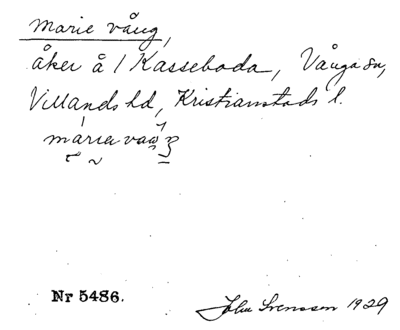 Marie vång,
åker å 1 Kasseboda, Vånga sn,
Villands hd, Kristianstads l.
Nr 5486.
John Svensson 1929